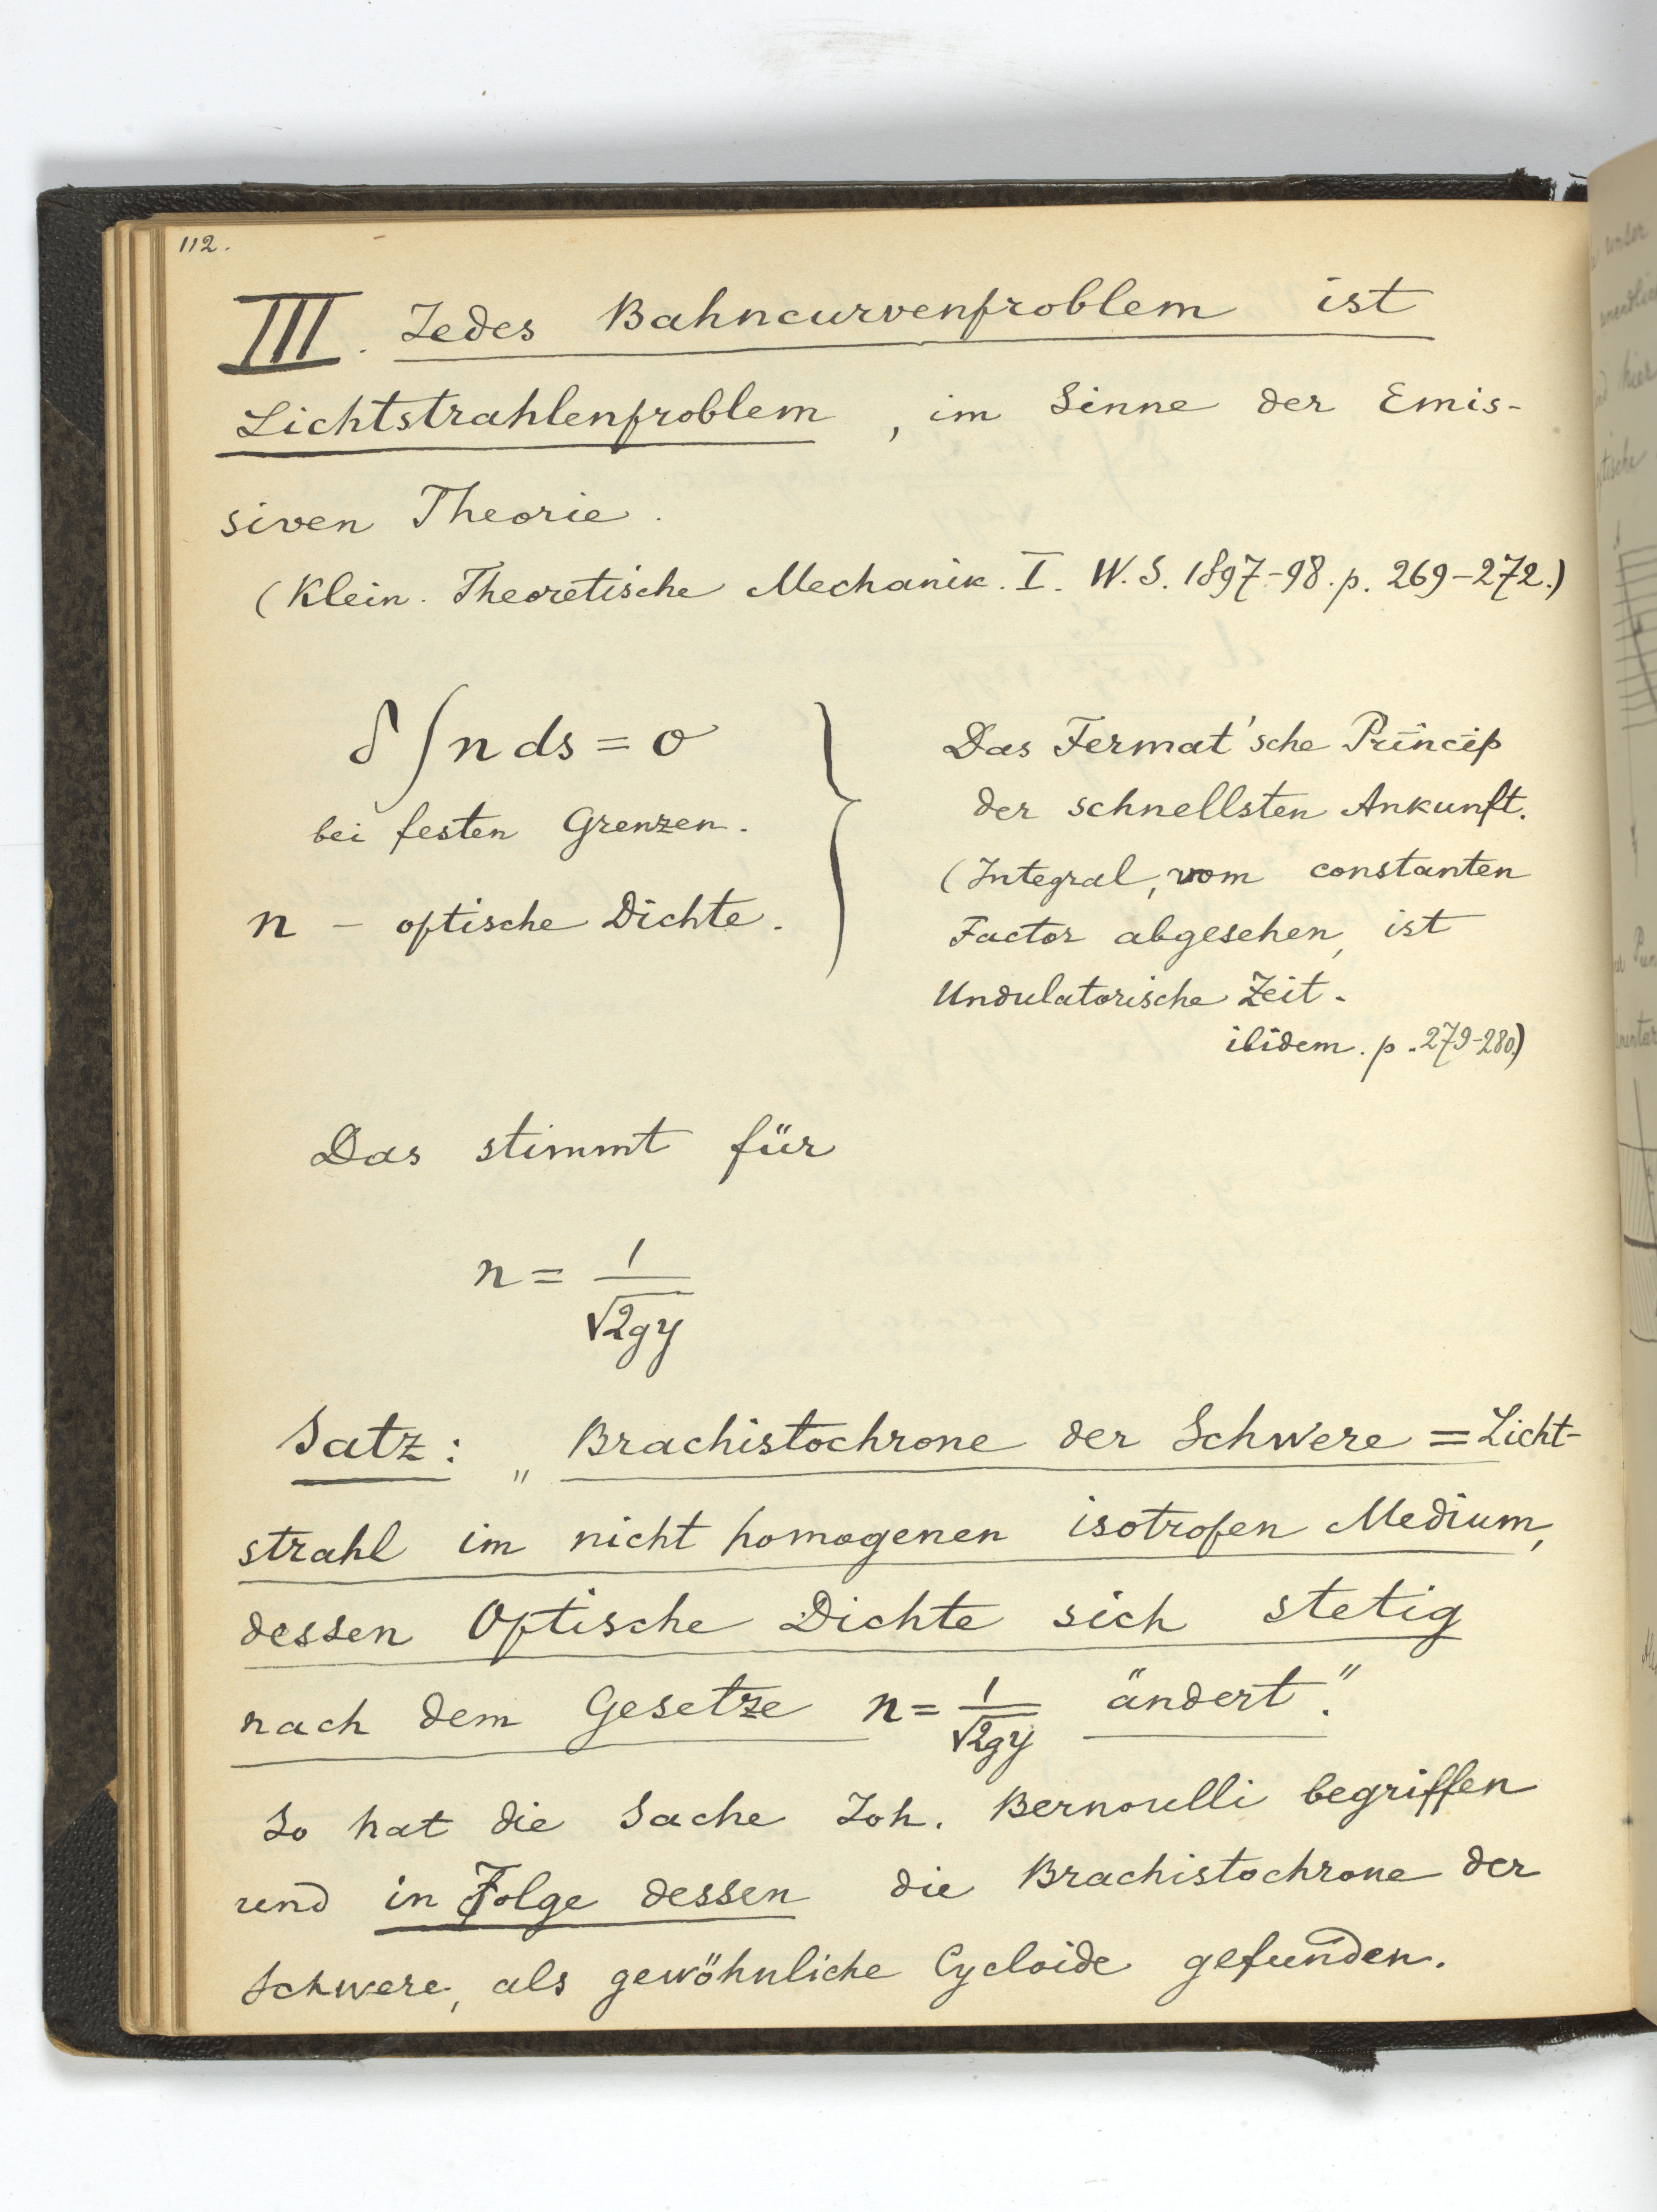 112.
III. Jedes Bahncurvenproblem ist
Lichtstrahlenproblem, im Sinne der Emis-
siven Theorie.
(Klein. Theoretische Mechanik. I. W.S. 1897-98. p. 269-272.)
δ∫n ds = 0
bei festen Grenzen.
n - optische Dichte.
Das Fermat'sche Princip
der schnellsten Ankunft.
(Integral, vom constanten
Factor abgesehen, ist
Undulatorische Zeit.
ibidem. p. 279-280.)
Das stimmt für
n = 1/√2gy
Satz: „Brachistochrone der Schwere = Licht-
strahl im nicht homogenen isotropen Medium,
dessen Optische Dichte sich stetig
nach dem Gesetze n = 1/√2gy ändert."
So hat die Sache Joh. Bernoulli begriffen
und in Folge dessen die Brachistochrone der
Schwere, als gewöhnliche Cycloide gefunden.